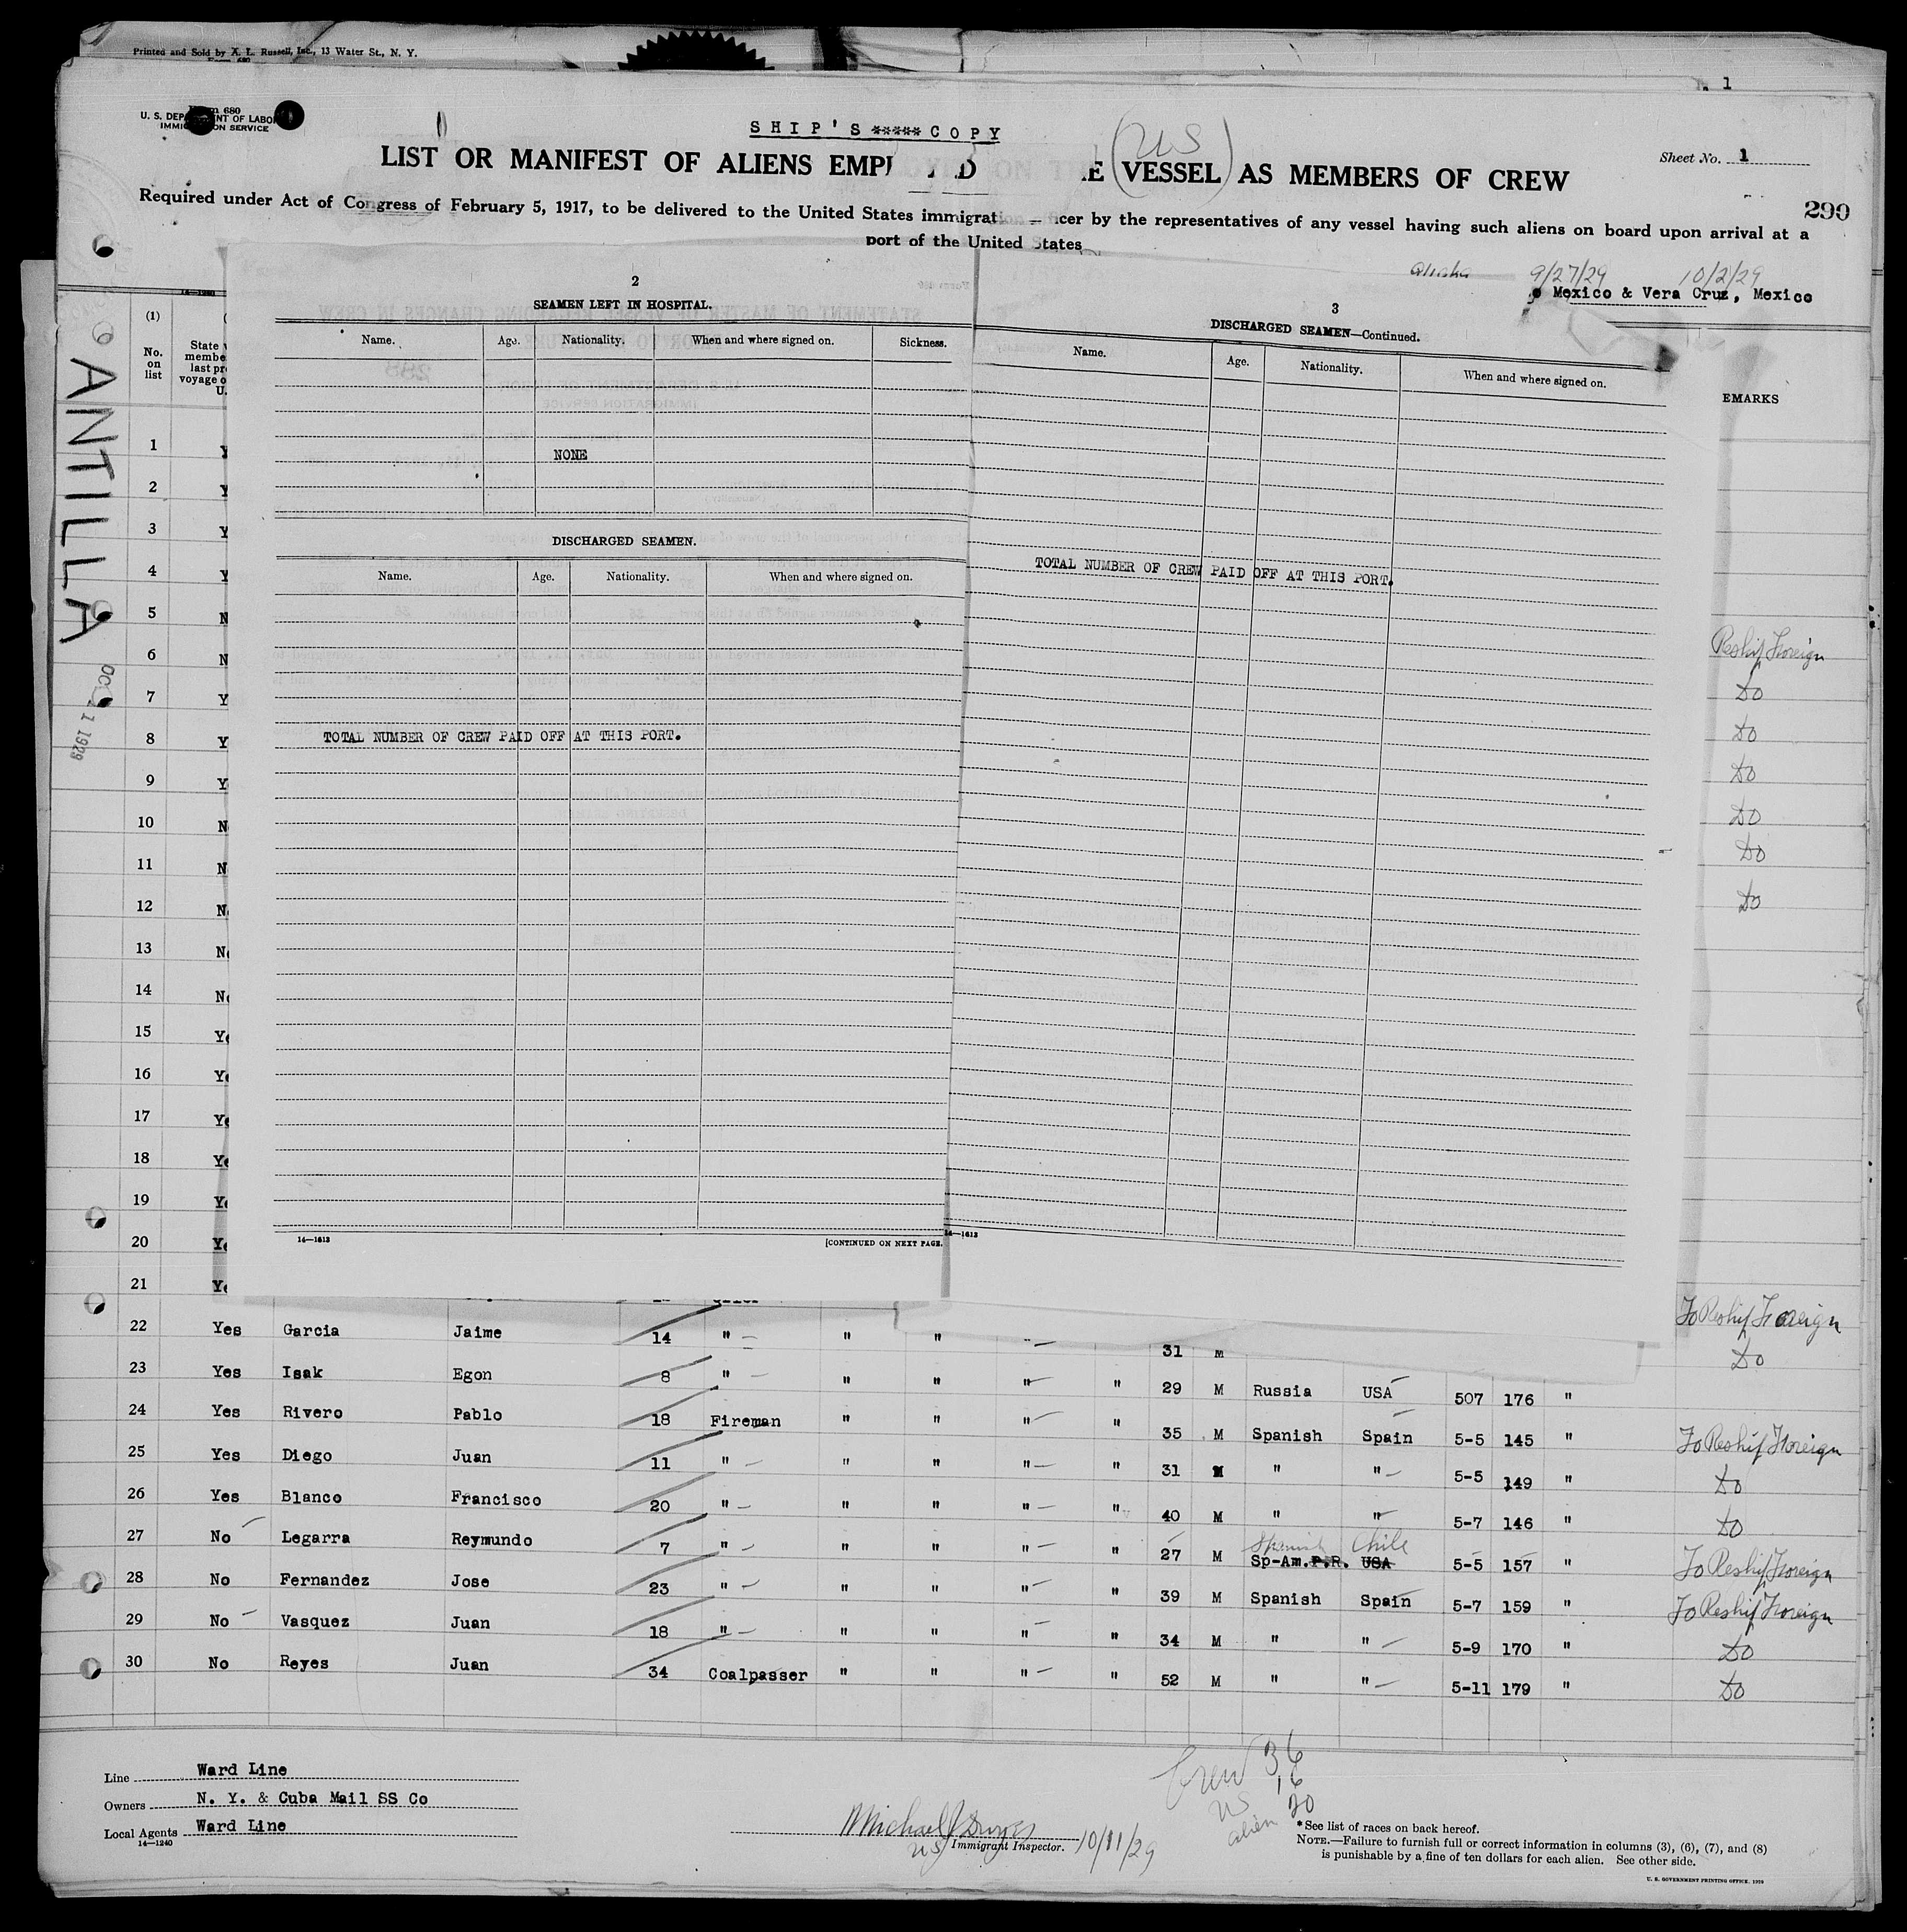 Printed and Sold by A. L. Russell, Inc., 13 Water St., N. Y.
Form 680
1
Form 680
U. S. DEPARTMENT OF LABOR
IMMIGRATION SERVICE
SHIP'S ***** COPY
(US)
LIST OR MANIFEST OF ALIENS EMPL D E VESSEL AS MEMBERS OF CREW
Sheet No. 1
Required under Act of Congress of February 5, 1917, to be delivered to the United States immigrat cer by the representatives of any vessel having such aliens on board upon arrival at a
port of the United States
290
9/27/29 10/2/29
o Mexico & Vera Cruz, Mexico
ANTILLA
OCT 11 1929
14—1240
(1)
No. on list
State w
membe
last pr
voyage o
U.
EMARKS
2
SEAMEN LEFT IN HOSPITAL.
Name. Age. Nationality. When and where signed on. Sickness.
NONE
DISCHARGED SEAMEN.
Name. Age. Nationality. When and where signed on.
TOTAL NUMBER OF CREW PAID OFF AT THIS PORT.
14—1613
[CONTINUED ON NEXT PAGE.
3
DISCHARGED SEAMEN—Continued.
Name. Age. Nationality. When and where signed on.
TOTAL NUMBER OF CREW PAID OFF AT THIS PORT.
14—1613
1 Y
2 Y
3 Y
4 Y
5 N
6 N Reship Foreign
7 Y Do
8 Y Do
9 Y Do
10 N Do
11 N Do
12 N Do
13 N
14 N
15 Ye
16 Ye
17 Ye
18 Ye
19 Ye
20 Ye
21 Ye
To Reship Foreign
22 Yes Garcia Jaime 14 " " " 31 M Do
23 Yes Isak Egon 8 " " " " " 29 M Russia USA 507 176 "
24 Yes Rivero Pablo 18 Fireman " " " " 35 M Spanish Spain 5-5 145 " To Reship Foreign
25 Yes Diego Juan 11 " " " " " 31 M " " 5-5 149 " Do
26 Yes Blanco Francisco 20 " " " " " 40 M " " 5-7 146 " Do
Spanish Chile
27 No Legarra Reymundo 7 " " " " " 27 M Sp-Am.P.R. USA 5-5 157 " To Reship Foreign
28 No Fernandez Jose 23 " " " " " 39 M Spanish Spain 5-7 159 " To Reship Foreign
29 No Vasquez Juan 18 " " " " " 34 M " " 5-9 170 " Do
30 No Reyes Juan 34 Coalpasser " " " " 52 M " " 5-11 179 " Do
Line Ward Line
Owners N. Y. & Cuba Mail SS Co
Local Agents Ward Line
14—1240
Crew 36
US 16
alien 20
Immigrant Inspector. 10/11/29
US
*See list of races on back hereof.
NOTE.—Failure to furnish full or correct information in columns (3), (6), (7), and (8)
is punishable by a fine of ten dollars for each alien. See other side.
U. S. GOVERNMENT PRINTING OFFICE. 1929